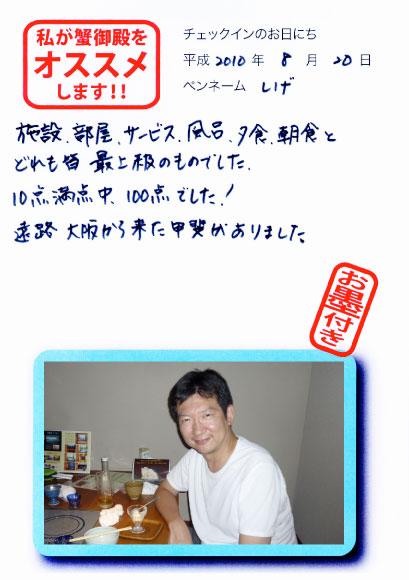 私が蟹御殿を
オススメ
します!!
チェックインのお日にち
平成 2010 年 8 月 20 日
ペンネーム しげ
施設、部屋、サービス、風呂、夕食、朝食と
どれも皆 最上級のものでした。
10点満点中、100点でした!
遠路 大阪から来た甲斐がありました。
お墨付き